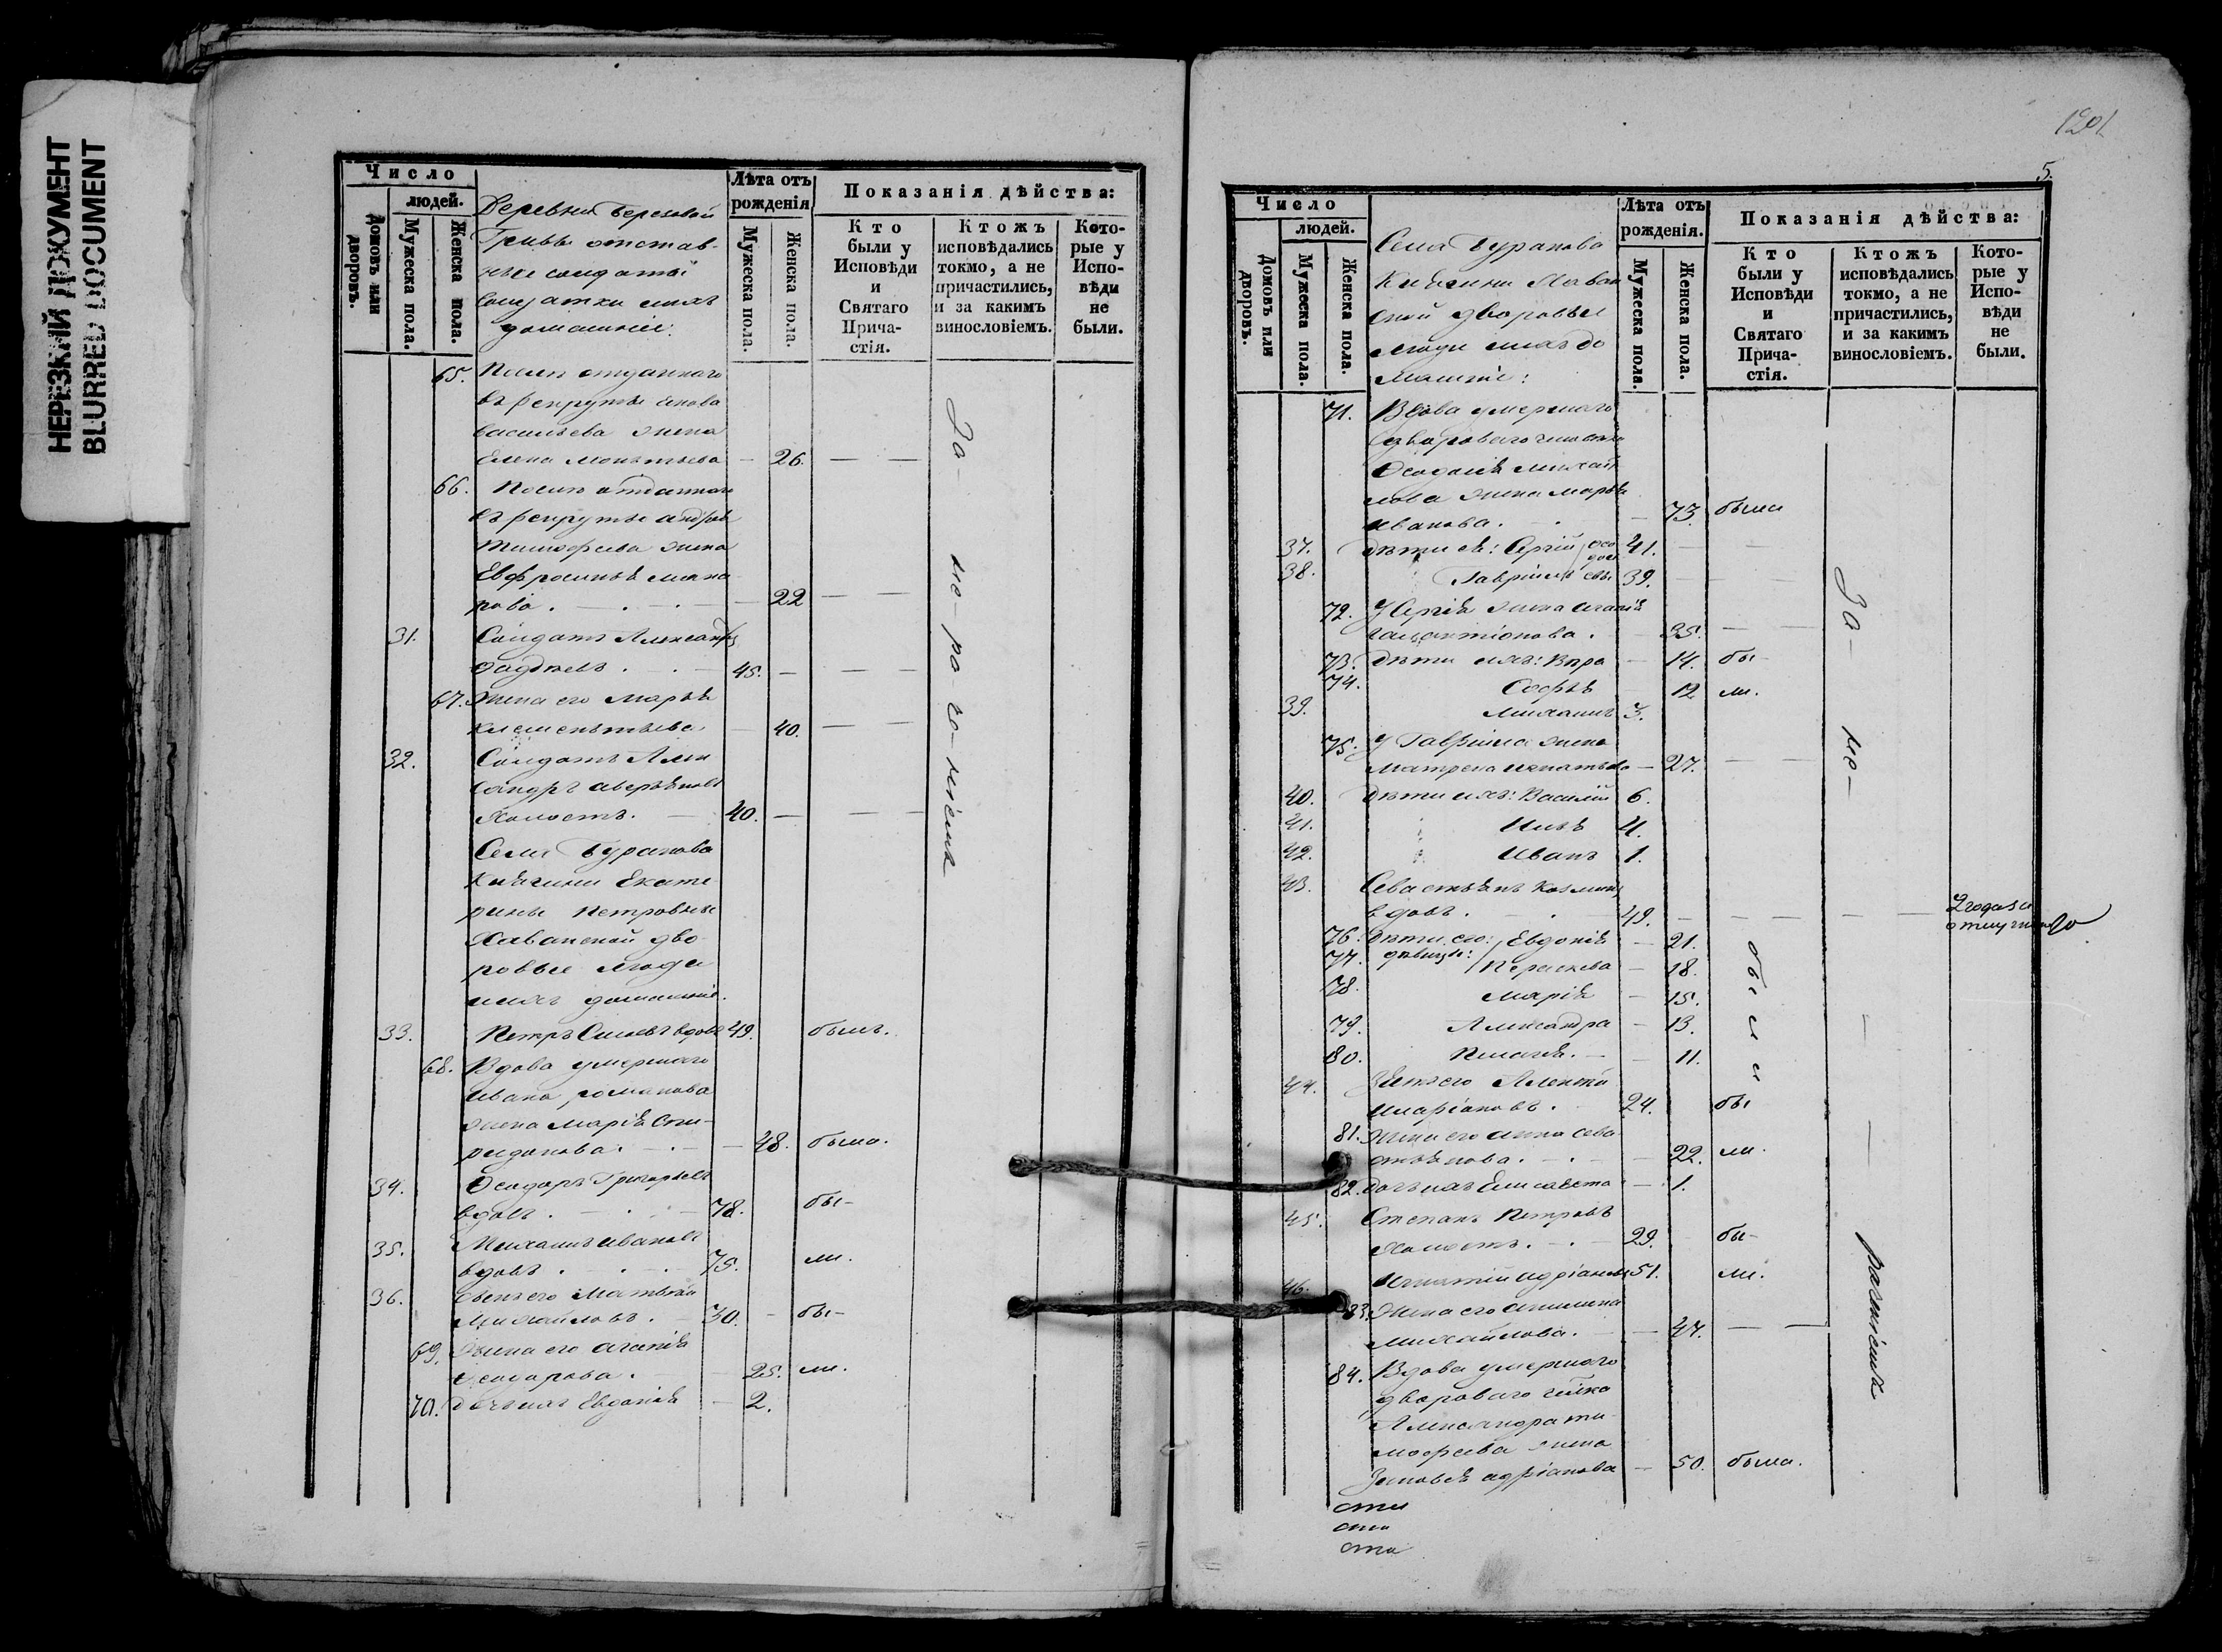 НЕРЕЗКИЙ ДОКУМЕНТ
BLURRED DOCUMENT
Число
людей.
Домовъ или дворовъ.
Мужеска пола.
Женска пола.
Деревни Березовой
Гривы отстав-
ные солдаты
солдатки и ихъ
домашніе:
Лѣта отъ
рожденія
Мужеска пола.
Женска пола.
Показанія дѣйства:
Кто
были у
Исповѣди
и
Святаго
Прича-
стія.
Ктожъ
исповѣдались
токмо, а не
причастились,
и за какимъ
винословіемъ.
Кото-
рые у
Испо-
вѣди
не
были.
65. После отданнаго
въ рекруты
Васильева жена
Елена 26. — —
66. После отданнаго
въ рекруты
Тимофеева жена
Евфросинья
22 — —
31. Солдатъ Александръ
Фадѣевъ . 45. — — —
67. Жена его Марья
Клементьева 40. — —
32. Солдатъ Алек
сандръ Аверьяновъ
холостъ. 40. — — —
За не ра че ніемъ
Села Буранова
Княгини Екате-
рины Петровны
Хованской дво-
ровые люди
и ихъ домашніе.
33. Петръ вдовъ 49. былъ.
68. Вдова умершаго
Ивана Романова
жена Марія Спи-
ридонова. 48. была.
34. Ѳеодоръ Григорьевъ
вдовъ . 78. бы-
35. Михаилъ Ивановъ
вдовъ . 75. ли.
36. Матвей
Михайловъ. 30. — бы-
69. Жена его Агапія
Ѳеодорова. 25. ли.
70. дочь ихъ Евдокія — 2.
1201
5.
Число
людей.
Домовъ или дворовъ.
Мужеска пола.
Женска пола.
Села Буранова
Княгини Хован
ской дворовые
люди и ихъ до
машніе:
Лѣта отъ
рожденія.
Мужеска пола.
Женска пола.
Показанія дѣйства:
Кто
были у
Исповѣди
и
Святаго
Прича-
стія.
Ктожъ
исповѣдались
токмо, а не
причастились,
и за какимъ
винословіемъ.
Кото-
рые у
Испо-
вѣди
не
были.
71. Вдова умершаго
двороваго
Михай
лова жена Марья
Иванова. — 73. была
37. Дѣти ея: Сергій 41. — —
38. Гавріилъ 39. — —
72. У Сергія жена Агапія
35. — —
73. Дѣти ихъ: Вѣра — 14. бы-
74. Софья 12 ли.
39. Михаилъ 3.
75. У Гавріила жена
Матрена Игнатьева — 27. — —
40. Дѣти ихъ: Василій 6.
41. 4.
42. Иванъ 1.
43. Севастьянъ Козминъ
вдовъ. 49. — — — — — 2 года
76. Дѣти его: Евдокія — 21.
77. девицы: Параскева — 18.
78. Марія — 15.
79. Александра — 13.
80. Пелагея. — 11.
были
44. Зять его Алексѣй
Иларіоновъ. 24. бы
81. Жена его Анна Сева
стьянова. — 22. ли.
82. дочь ихъ Елисавета — 1.
45. Степанъ Петровъ
холостъ. 29. бы-
46. Игнатій Адріановъ 51. ли.
83. Жена его Акилина
Михайлова. — 47. — —
84. Вдова умершаго
двороваго
Александра Ти-
мофеева жена
Зиновья Адріанова — 50. была.
За не раченіемъ